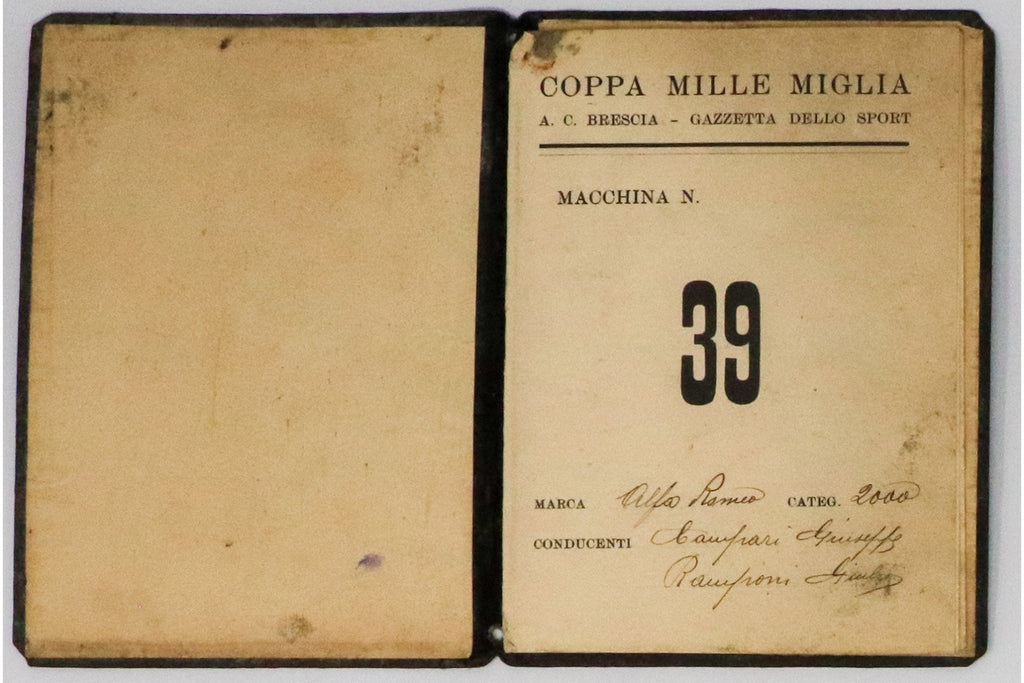 COPPA MILLE MIGLIA
A. C. BRESCIA - GAZZETTA DELLO SPORT
MACCHINA N.
39
MARCA Alfa Romeo CATEG. 2000
CONDUCENTI Campari Giuseppe
Ramponi Giulio